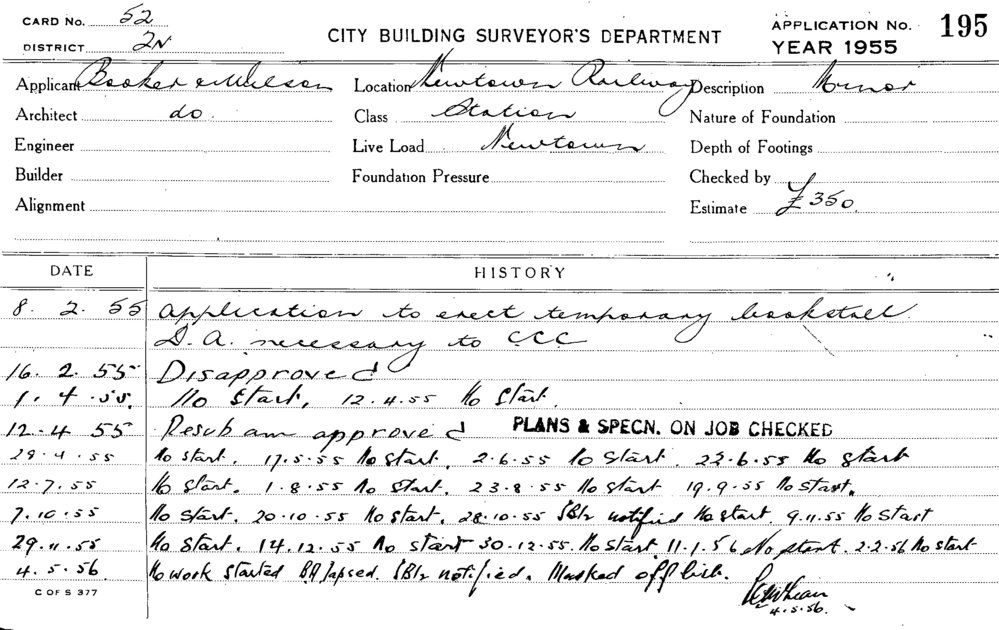 CARD No. 52
DISTRICT 2N
CITY BUILDING SURVEYOR'S DEPARTMENT
APPLICATION No. 195
YEAR 1955
Applicant Booker & Wilson Location Newtown Railway Description Minor
Architect do. Class Station Nature of Foundation
Engineer Live Load Newtown Depth of Footings
Builder Foundation Pressure Checked by
Alignment Estimate £350.
DATE HISTORY
8. 2. 55 Application to erect temporary bookstall
D.A. necessary to CCC
16. 2. 55 Disapproved
1. 4. 55. No Start, 12.4.55 No Start.
12.4 55 Resub am approved PLANS & SPECN. ON JOB CHECKED
29.4.55 No start. 17.5.55 No Start. 2.6.55 No Start. 22.6.55 No start
12.7.55 No Start. 1.8.55 No Start. 23.8.55 No Start 19.9.55 No start.
7.10.55 No Start. 20.10.55 No Start. 28.10.55 notified No start. 9.11.55 No Start
29.11.55 No Start. 14.12.55 No start 30.12.55. No Start. 11.1.56 No start. 2.2.56 No start
4.5.56. No work started BA lapsed. notified. Marked off list.
4.5.56.
C OF S 377